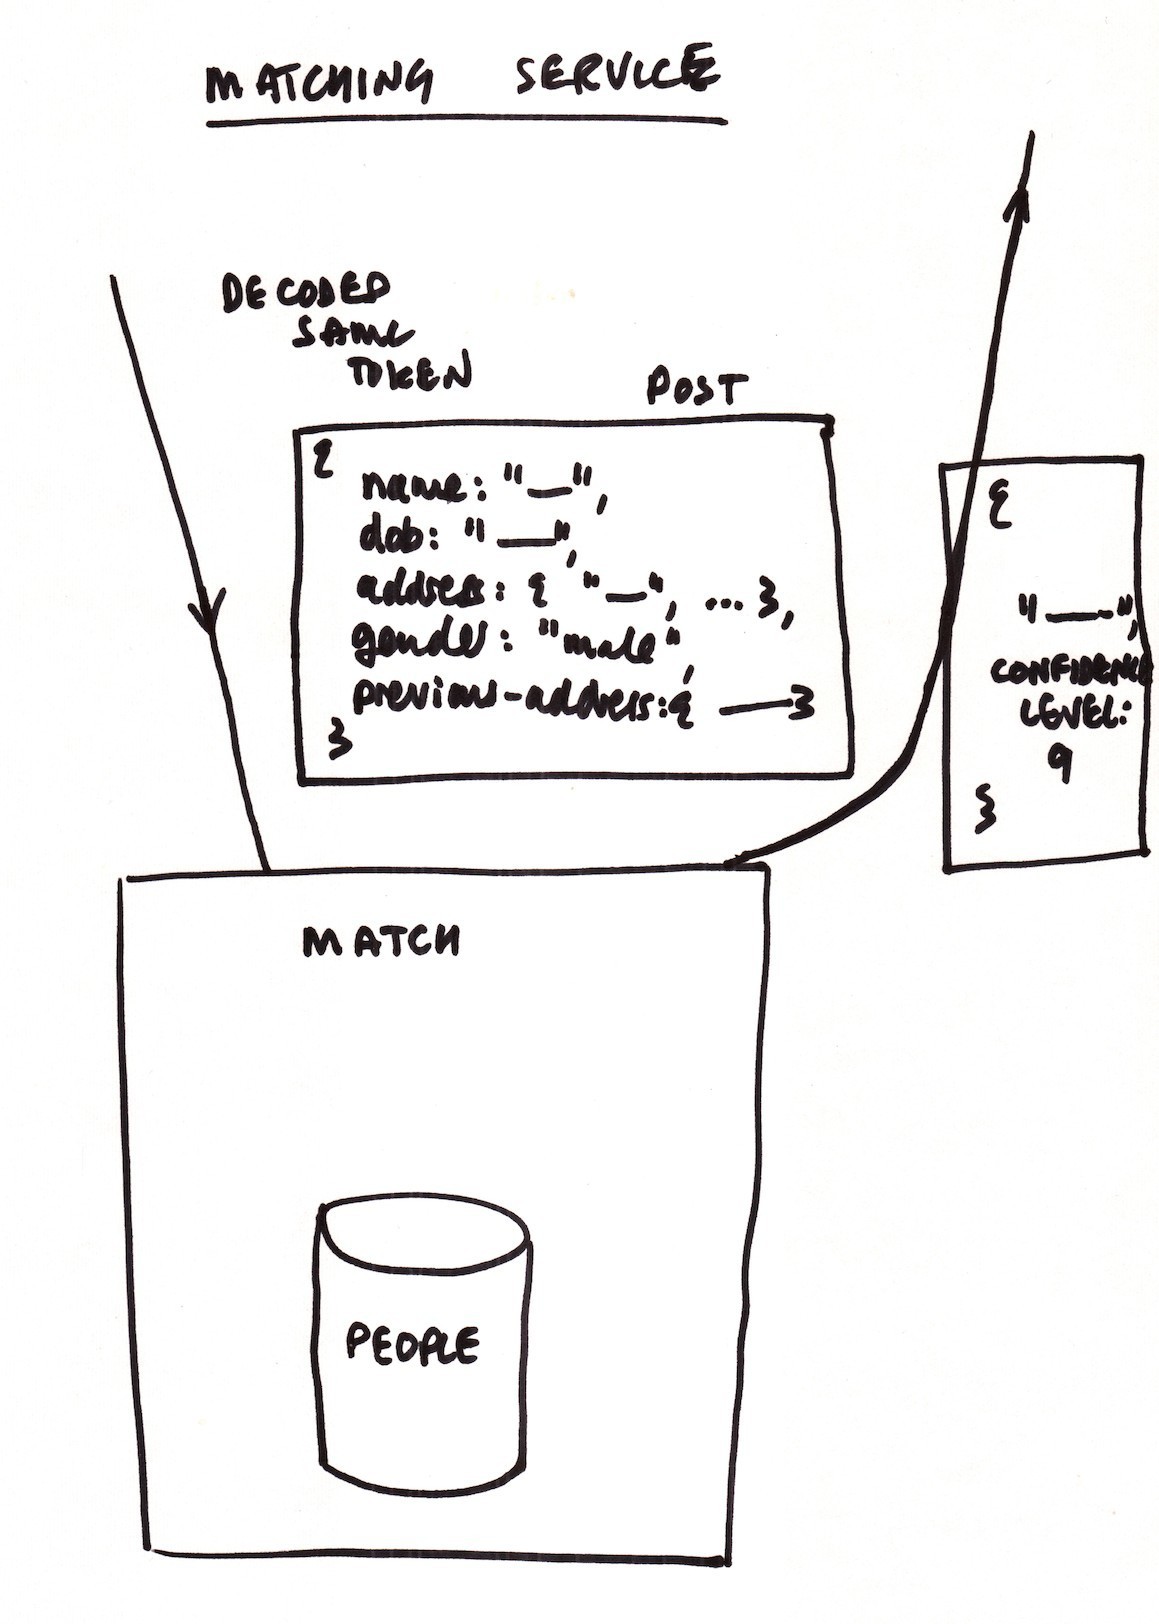 MATCHING SERVICE
DECODED
SAML
TOKEN
POST
{
name: "—",
dob: "—",
address: { "—", ... },
gender: "male",
previous-address:{ — }
}
{
"—",
CONFIDENCE
LEVEL:
9
}
MATCH
PEOPLE